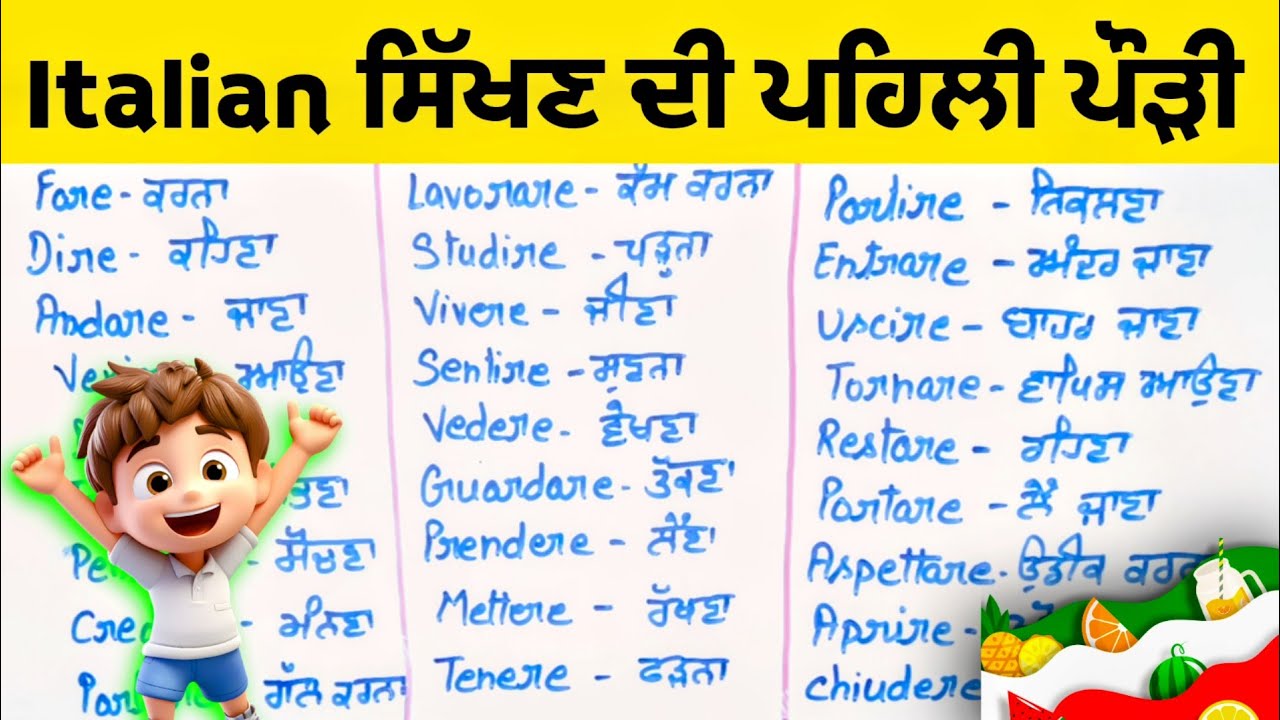 Italian ਸਿੱਖਣ ਦੀ ਪਹਿਲੀ ਪੌੜੀ
Fare - ਕਰਨਾ
Dire - ਕਹਿਣਾ
Andare - ਜਾਣਾ
ਆਉਣਾ
ਸੋਚਣਾ
ਮੰਨਣਾ
ਗੱਲ ਕਰਨਾ
Lavorare - ਕੰਮ ਕਰਨਾ
Studire - ਪੜ੍ਹਨਾ
Vivere - ਜੀਣਾ
Sentire - ਸੁਣਨਾ
Vedere - ਵੇਖਣਾ
Guardare - ਤੱਕਣਾ
Prendere - ਲੈਣਾ
Mettere - ਰੱਖਣਾ
Tenere - ਫੜਨਾ
Partire - ਨਿਕਲਣਾ
Entrare - ਅੰਦਰ ਜਾਣਾ
Uscire - ਬਾਹਰ ਜਾਣਾ
Tornare - ਵਾਪਿਸ ਆਉਣਾ
Restare - ਰਹਿਣਾ
Portare - ਲੈ ਜਾਣਾ
Aspettare - ਉਡੀਕ
Aprire -
chiudere